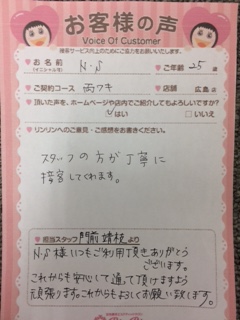 お客様の声
Voice Of Customer
接客サービス向上のためにご協力をお願いいたします。
お名前 N.S ご年齢 25 歳
(イニシャル可)
ご契約コース 両ワキ 店舗 広島 店
頂いた声を、ホームページや店内でご紹介してもよろしいですか?
はい いいえ
リンリンへのご意見・ご感想をお書きください。
スタッフの方が丁寧に
接客してくれます。
担当スタッフ 門前 靖枝 より
N.S様いつもご利用頂きありがとう
ございます。
これからも安心して通って頂けますよう
頑張ります。これからもよろしくお願い致します。